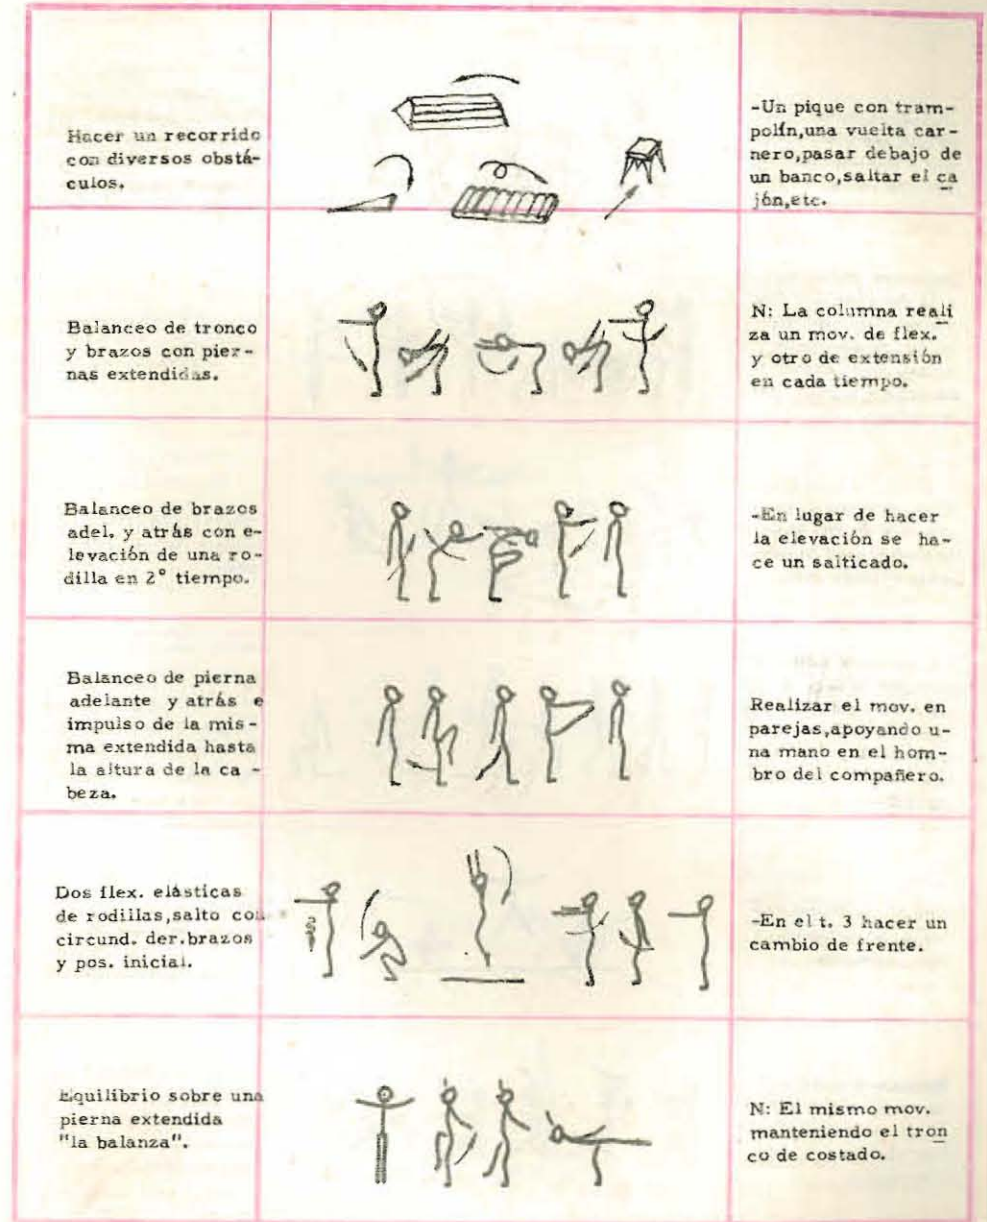 Hacer un recorrido
con diversos obstá-
culos.
-Un pique con tram-
polín,una vuelta car-
nero,pasar debajo de
un banco,saltar el ca
jón,etc.
Balanceo de tronco
y brazos con pier-
nas extendidas.
N: La columna reali
za un mov. de flex.
y otro de extensión
en cada tiempo.
Balanceo de brazos
adel. y atrás con e-
levación de una ro-
dilla en 2° tiempo.
-En lugar de hacer
la elevación se ha-
ce un salticado.
Balanceo de pierna
adelante y atrás e
impulso de la mis-
ma extendida hasta
la altura de la ca -
beza.
Realizar el mov. en
parejas,apoyando u-
na mano en el hom-
bro del compañero.
Dos flex. elásticas
de rodillas,salto con
circund. der.brazos
y pos. inicial.
-En el t. 3 hacer un
cambio de frente.
Equilibrio sobre una
pierna extendida
"la balanza".
N: El mismo mov.
manteniendo el tron
co de costado.